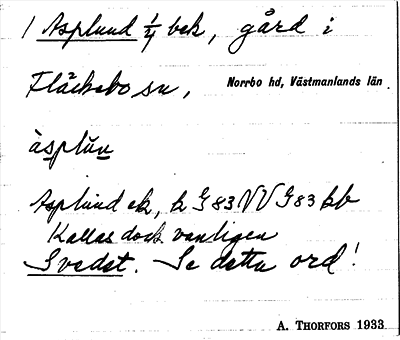 1 Asplund 1/4 bek, gård i
Fläckebo sn, Norrbo hd, Västmanlands län
àsplŭn
Asplund ek, k G 83 VV G 83 kb
Kallas dock vanligen
Svedet. Se detta ord!
A. THORFORS 1933